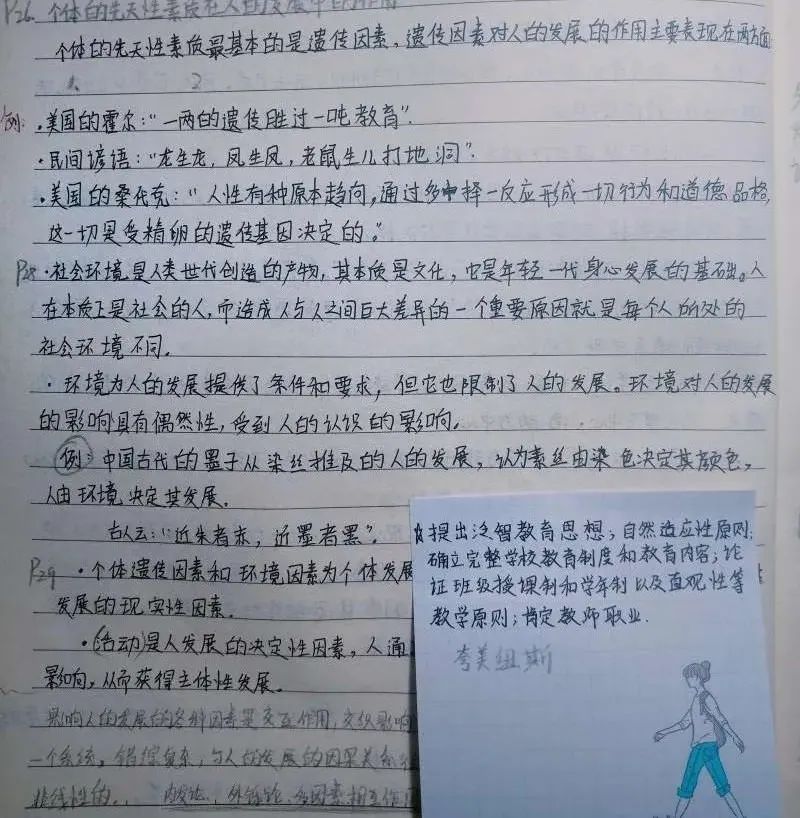 P26 个体的先天性素质在人的发展中的作用
个体的先天性素质最基本的是遗传因素，遗传因素对人的发展的作用主要表现在两方面
1. 2
例：·美国的霍尔："一两的遗传胜过一吨教育".
·民间谚语："龙生龙，凤生凤，老鼠生儿打地洞".
·美国的桑代克："人性有种原本趋向，通过多中择一反应形成一切行为和道德品格，
这一切是受精卵的遗传基因决定的。"
P28·社会环境是人类世代创造的产物，其本质是文化，它是年轻一代身心发展的基础。人
在本质上是社会的人，而造成人与人之间巨大差异的一个重要原因就是每个人所处的
社会环境不同.
·环境为人的发展提供了条件和要求，但它也限制了人的发展。环境对人的发展
的影响具有偶然性，受到人的认识的影响.
例：中国古代的墨子从染丝推及的人的发展，认为素丝由染色决定其颜色，
人由环境决定其发展.
古人云："近朱者赤，近墨者黑".
P29 ·个体遗传因素和环境因素为个体发展
发展的现实性因素.
·(活动)是人发展的决定性因素，人通
影响，从而获得主体性发展.
影响人的发展的各种因素是交互作用，交织影响
一个系统，错综复杂，与人的发展的因果关系
非线性的. 内发论、外铄论、多因素相互作用
提出泛智教育思想；自然适应性原则；
确立完整学校教育制度和教育内容；论
证班级授课制和学年制以及直观性等
教学原则；肯定教师职业.
夸美纽斯